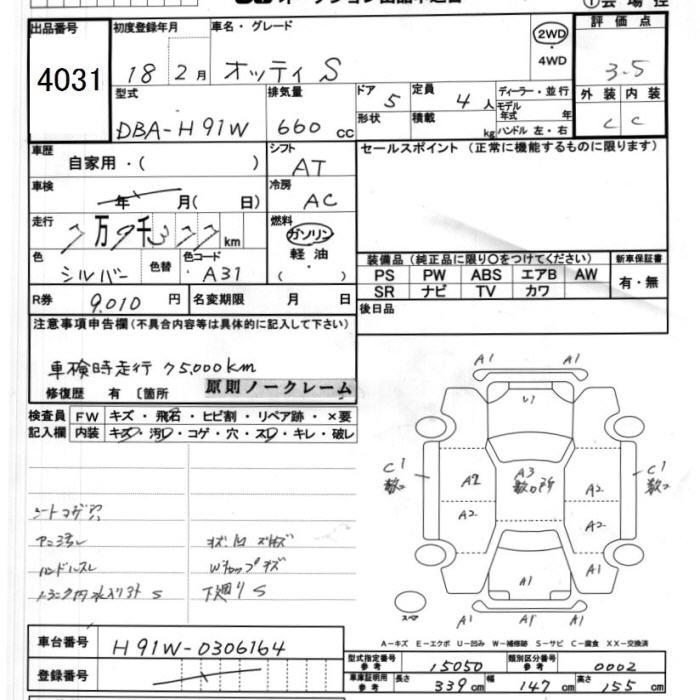 ①会場控
出品番号
4031
初度登録年月
18年2月
車名・グレード
オッティ S
2WD
・
4WD
評価点
3.5
外装 内装
C C
型式
DBA-H91W
排気量
660 cc
ドア 5
形状
定員 4 人
積載 kg
ディーラー・並行
モデル年式 年
ハンドル 左・右
車歴
自家用・( )
シフト
AT
セールスポイント (正常に機能するものに限ります)
車検
年 月( 日)
冷房
AC
走行
7万9千377 km
燃料
ガソリン
軽油
色
シルバー
色替
色コード
A31
装備品 (純正品に限り○をつけてください)
新車保証書
PS PW ABS エアB AW
有・無
SR ナビ TV カワ
R券 9,010 円
名変期限 月 日
後日品
注意事項申告欄 (不具合内容等は具体的に記入して下さい)
車検時走行 75,000km
修復歴 有 〔箇所
原則ノークレーム
検査員
記入欄
FW キズ・飛石・ヒビ割・リペア跡・×要
内装 キズ・汚レ・コゲ・穴・スレ・キレ・破レ
ハンドルスレ
下廻りS
A1 A1
U1
C1
A2
A3
A2
C1
A2
A2
A1
A1
A1
A1 A1 A1
スペア
A-キズ E-エクボ U-凹み W-補修跡 S-サビ C-腐食 XX-交換済
車台番号
H91W-0306164
登録番号
型式指定番号
参考
15050
類別区分番号
参考
0002
車庫証明用
参考
長さ 339cm
幅 147cm
高さ 155cm